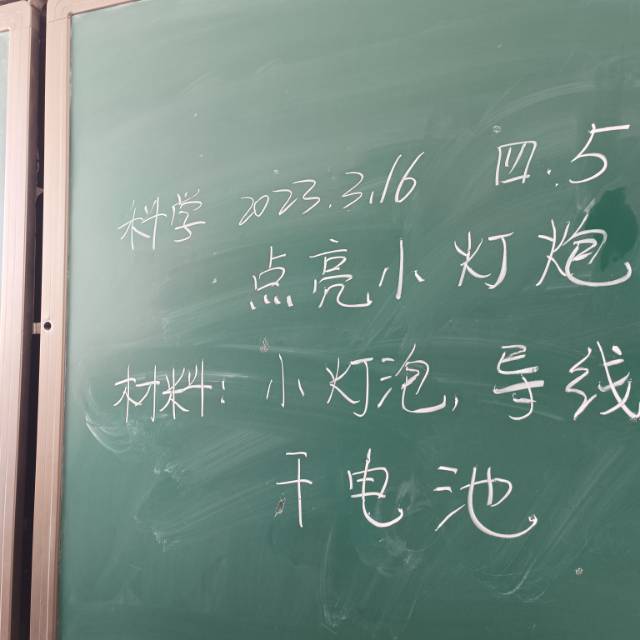 科学 2023.3.16 四.5
点亮小灯炮
材料：小灯泡，导线
干电池